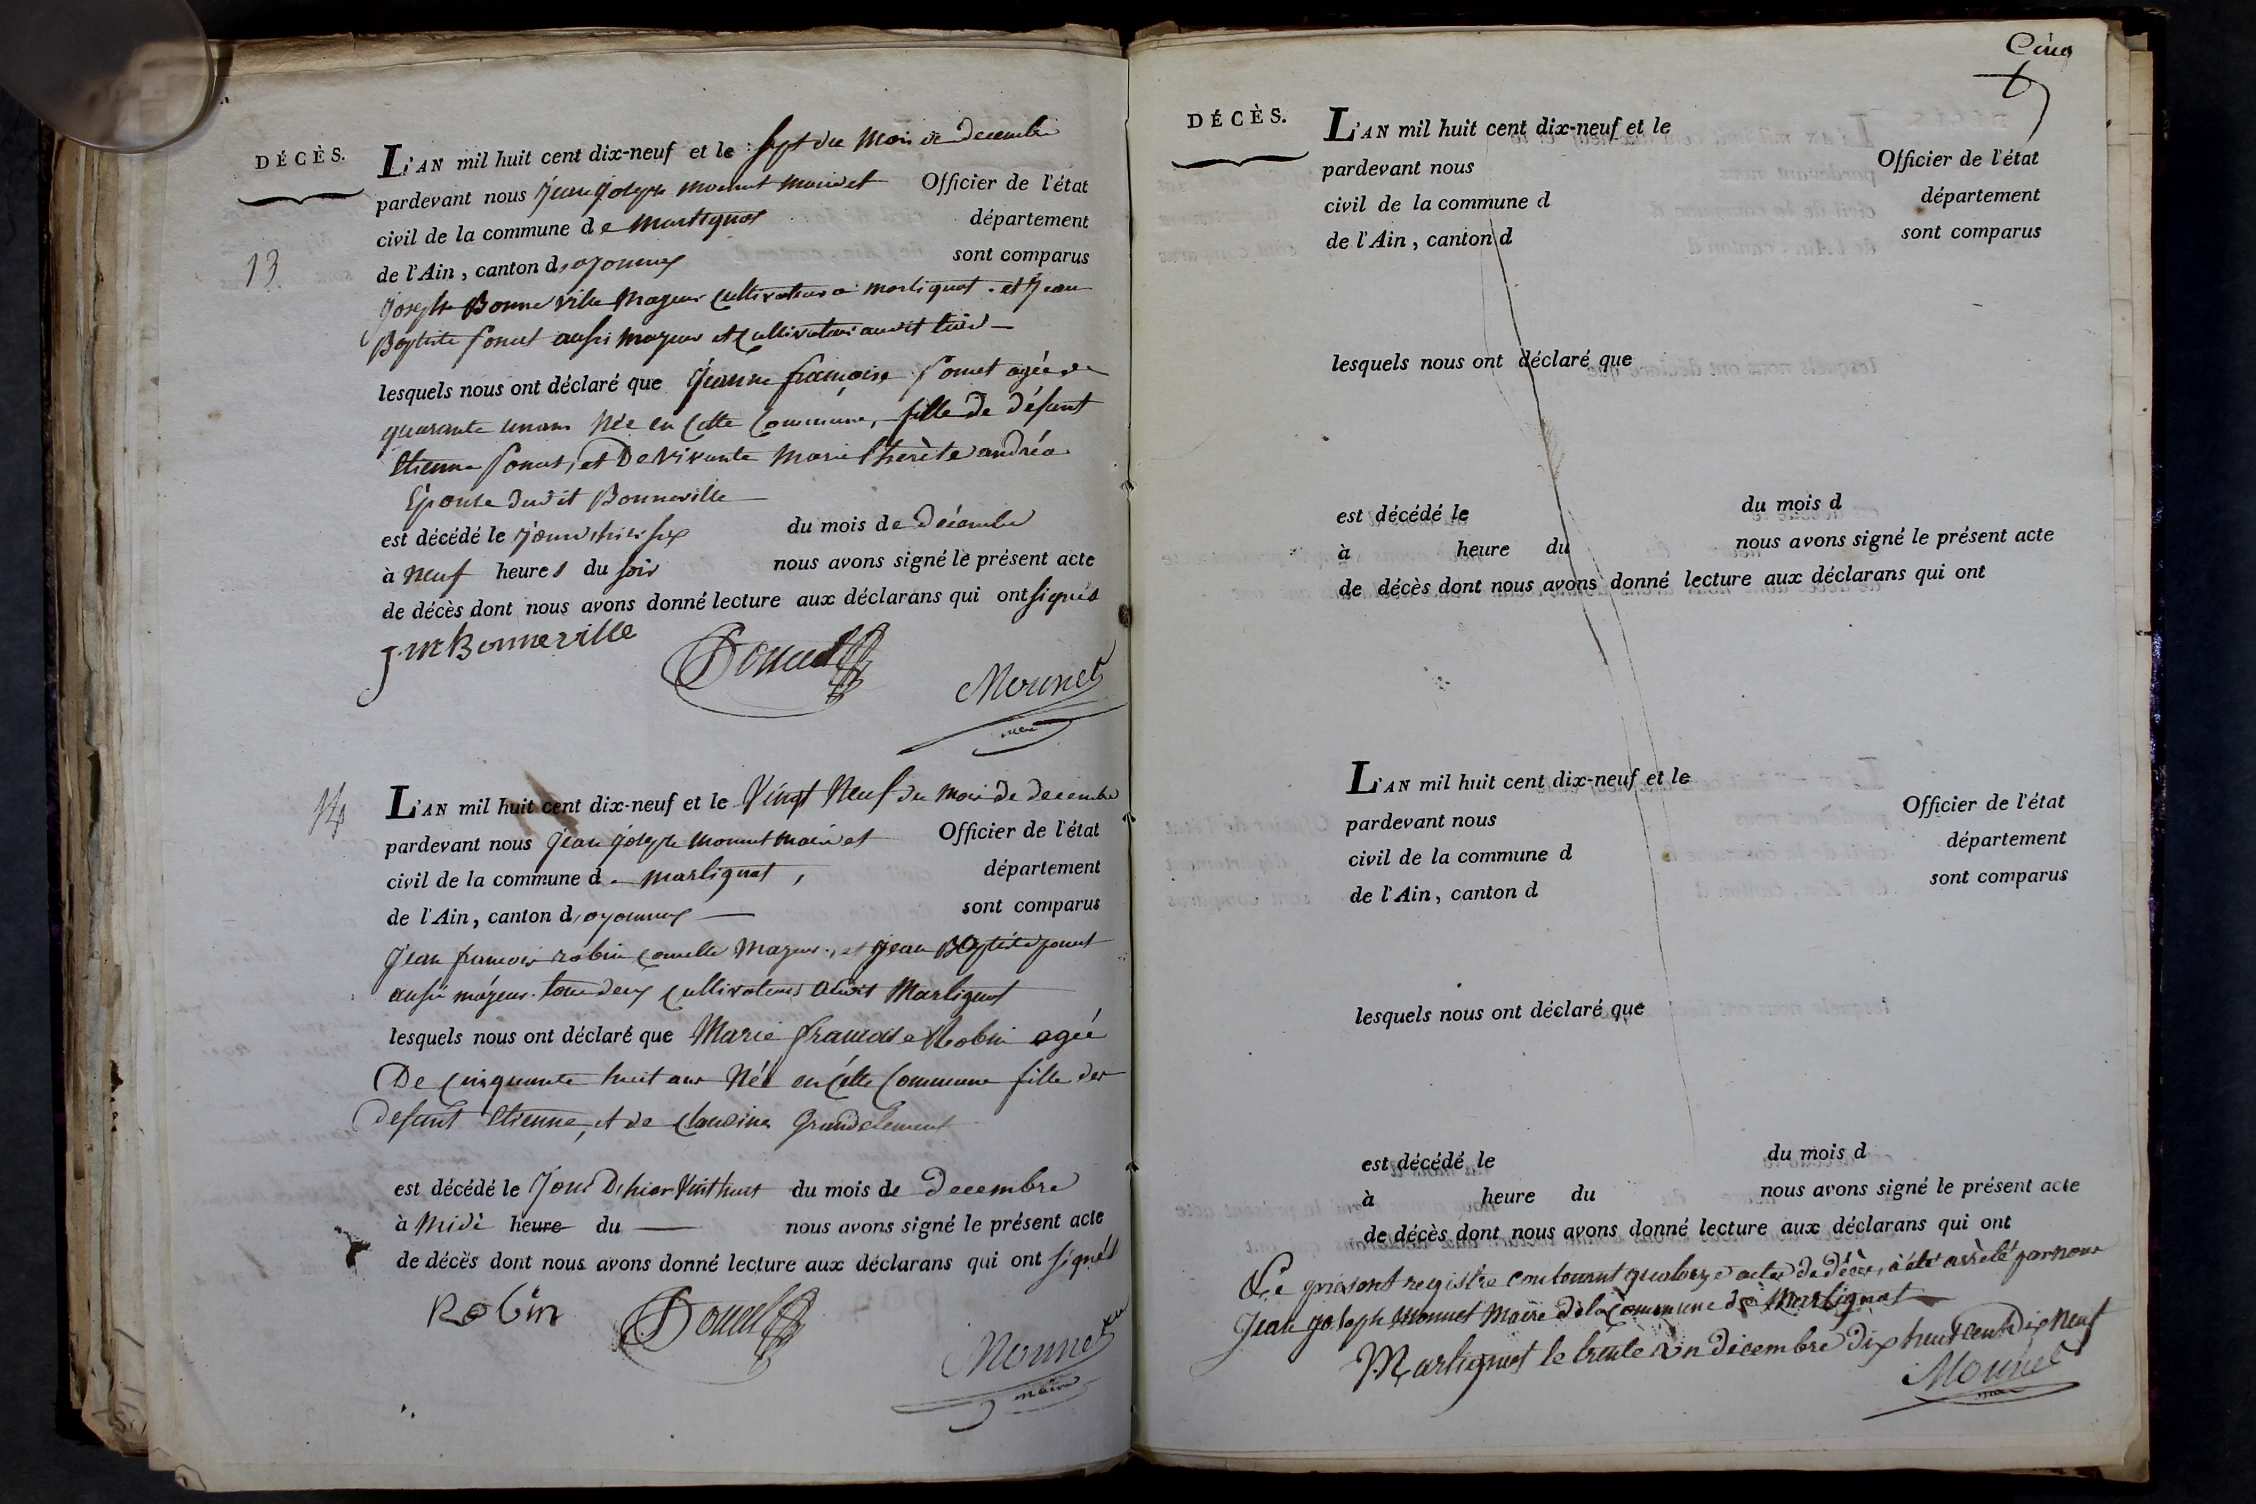 DÉCÈS.
13
L'AN mil huit cent dix-neuf et le sept du Mois de decembre
pardevant nous Jean Joseph Monnet Maire et Officier de l'état
civil de la commune de Martignat département
de l'Ain, canton d'oyonnax sont comparus
Joseph Bonneville Majeur Cultivateur a Martignat . et Jean
Baptiste Poncet aussi Majeur et Cultivateur audit lieu —
lesquels nous ont déclaré que Jeanne françoise Poncet agée de
quarante un ans Née en Cette Commune, fille de défunt
Etienne Poncet, et De vivante Marie thérèse andréa
Epouse dudit Bonneville —
est décédé le Jour d'hier six du mois de Décembre
à Neuf heures du soir nous avons signé le présent acte
de décès dont nous avons donné lecture aux déclarans qui ont signés
J. m Bonneville
Poncet
Monnet
maire
14
L'AN mil huit cent dix-neuf et le Vingt Neuf du Mois de decembre
pardevant nous Jean Joseph Monnet Maire et Officier de l'état
civil de la commune de Martignat, département
de l'Ain, canton d'oyonnax — sont comparus
Jean francois robin Majeur, et Jean Baptiste poncet
aussi majeur. tous deux Cultivateurs audit Martignat
lesquels nous ont déclaré que Marie francoise Robin agée
De Cinquante huit ans Née en Cette Commune fille de
defunt Etienne, et de Claudine Grandclement
est décédé le Jour D'hier Vint huit du mois de Decembre
à Midi heure du — nous avons signé le présent acte
de décès dont nous avons donné lecture aux déclarans qui ont signés
Robin
Poncet
Monnet
maire
Cinq
DÉCÈS.
L'AN mil huit cent dix-neuf et le
pardevant nous Officier de l'état
civil de la commune d département
de l'Ain, canton d sont comparus
lesquels nous ont déclaré que
est décédé le du mois d
à heure du nous avons signé le présent acte
de décès dont nous avons donné lecture aux déclarans qui ont
L'AN mil huit cent dix-neuf et le
pardevant nous Officier de l'état
civil de la commune d département
de l'Ain, canton d sont comparus
lesquels nous ont déclaré que
est décédé le du mois d
à heure du nous avons signé le présent acte
de décès dont nous avons donné lecture aux déclarans qui ont
Le présent registre contenant quatorze actes de décès, a été arrêté par nous
Jean Joseph Monnet Maire de la Commune de Martignat —
Martignat le trente un décembre dix huit cent Dix Neuf
Monnet
maire